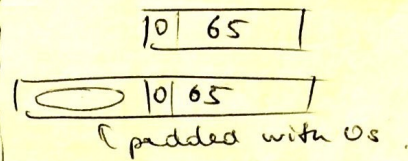 0 65
0 65
padded with 0s.